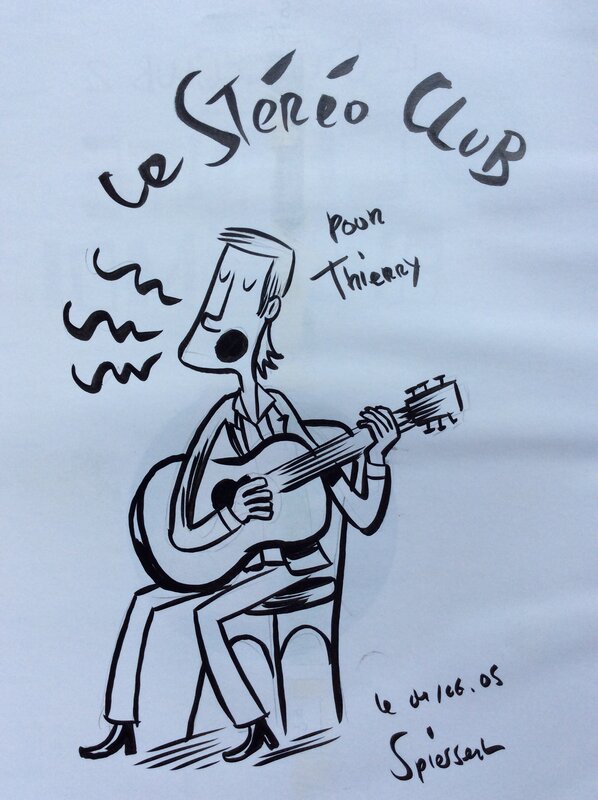 Le Stéréo Club
pour
Thierry
le 04/06.05
Spiessert